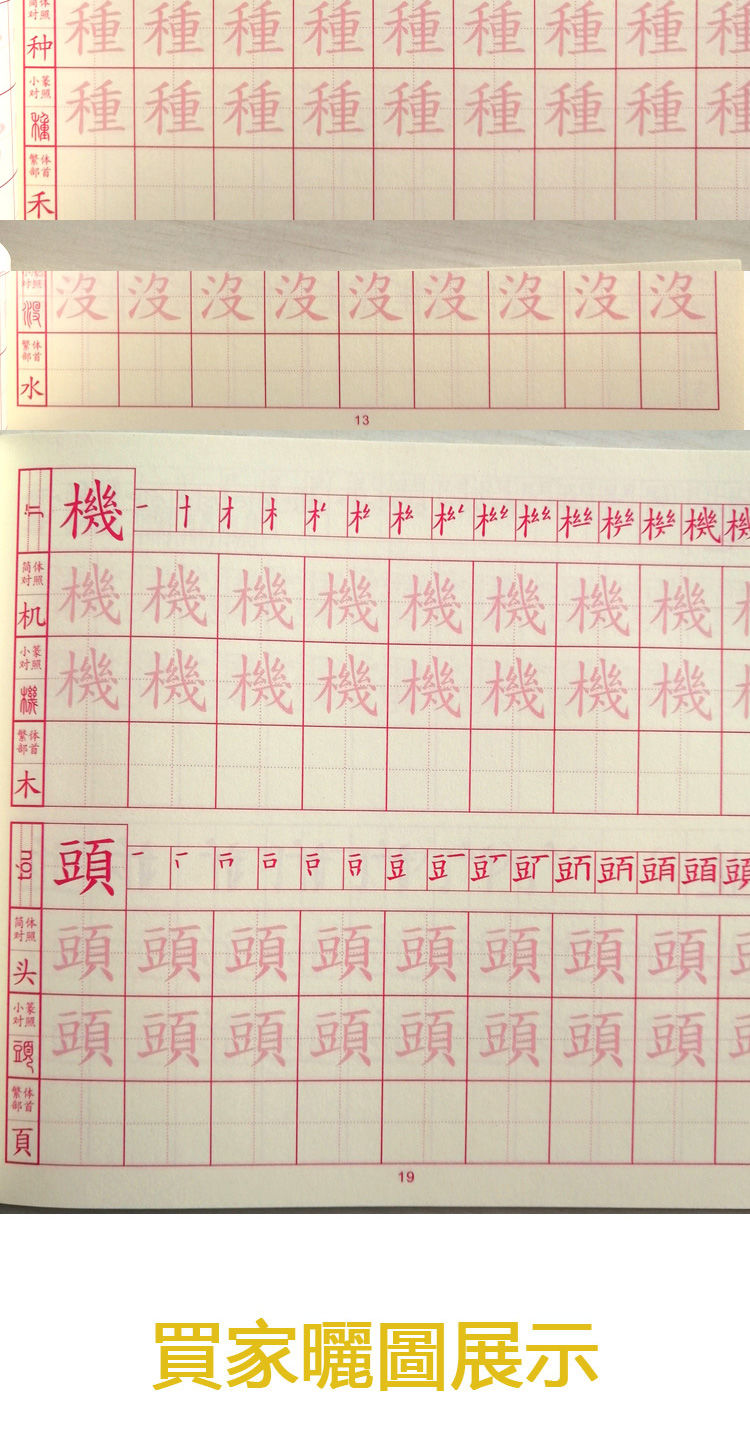 简体
对照
种 種 種 種 種 種 種 種 種 種
小篆
对照
種 種 種 種 種 種 種 種 種 種
繁体
部首
禾
对照
沒 沒 沒 沒 沒 沒 沒 沒 沒 沒
繁体
部首
水
13
jī 機 一 十 才 木
简体
对照
机 機 機 機 機 機 機 機 機 機
小篆
对照
機 機 機 機 機 機 機 機 機 機
繁体
部首
木
tóu 頭 豆 頭
简体
对照
头 頭 頭 頭 頭 頭 頭 頭 頭 頭
小篆
对照
頭 頭 頭 頭 頭 頭 頭 頭 頭 頭
繁体
部首
頁
19
買家曬圖展示